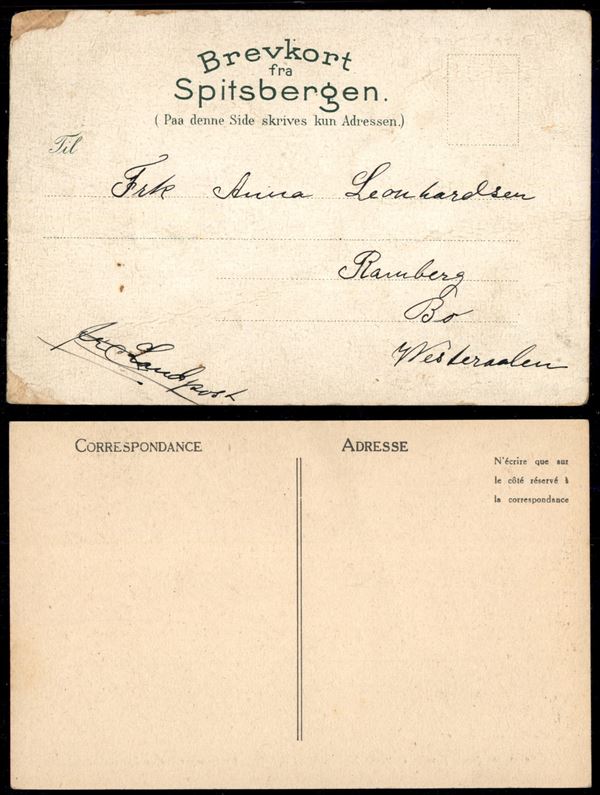 Brevkort
fra
Spitsbergen.
(Paa denne Side skrives kun Adressen.)
Til
Frk Anna Leonhardsen
Ramberg
Bo
Westeraalen
Landpost
CORRESPONDANCE
ADRESSE
N'écrire que sur
le côté réservé à
la correspondance